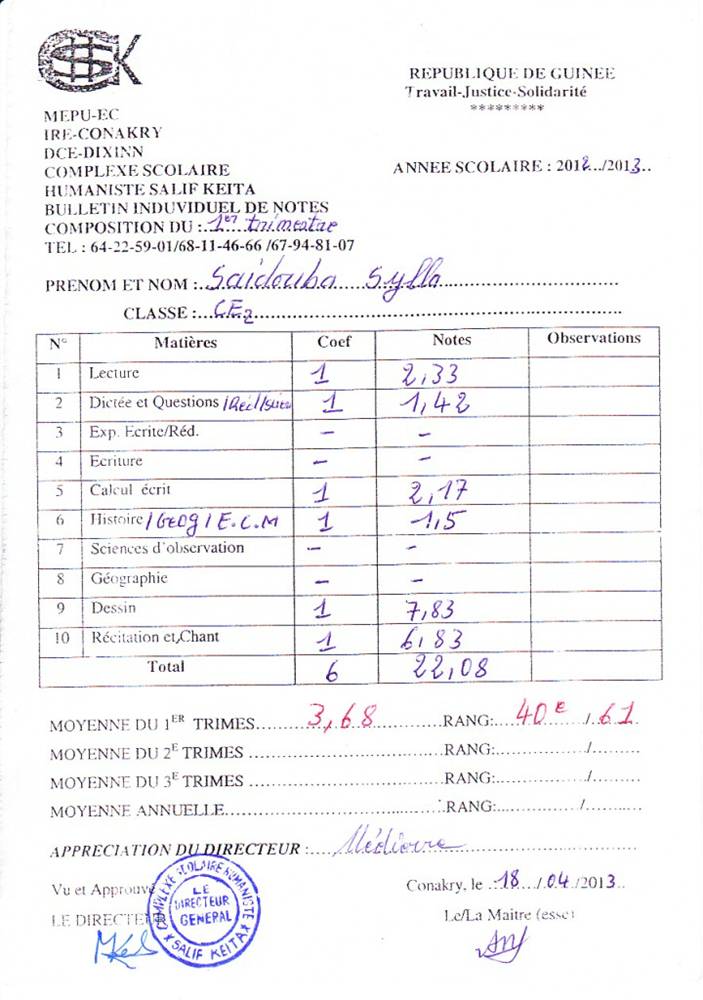 HSK
REPUBLIQUE DE GUINEE
Travail-Justice-Solidarité
*********
MEPU-EC
IRE-CONAKRY
DCE-DIXINN
COMPLEXE SCOLAIRE
HUMANISTE SALIF KEITA
BULLETIN INDUVIDUEL DE NOTES
COMPOSITION DU :..1er trimestre
TEL : 64-22-59-01/68-11-46-66 /67-94-81-07
ANNEE SCOLAIRE : 2012../2013..
PRENOM ET NOM :..Saidouba Sylla
CLASSE :...CE2
N° Matières Coef Notes Observations
1 Lecture 1 2,33
2 Dictée et Questions 1 1,42
3 Exp. Ecrite/Réd. - -
4 Ecriture - -
5 Calcul écrit 1 2,17
6 Histoire/GEOG/E.C.M 1 1,5
7 Sciences d'observation - -
8 Géographie - -
9 Dessin 1 7,83
10 Récitation et,Chant 1 6,83
Total 6 22,08
MOYENNE DU 1ER TRIMES....3,68....RANG:...40e../.61.
MOYENNE DU 2E TRIMES ....RANG:..../....
MOYENNE DU 3E TRIMES ....RANG:..../....
MOYENNE ANNUELLE....RANG:..../....
APPRECIATION DU DIRECTEUR :....Médiocre
Vu et Approuvé
LE DIRECTEUR
COMPLEXE SCOLAIRE HUMANISTE
LE
DIRECTEUR
GENERAL
* SALIF KEITA *
Conakry, le .18../.04./2013..
Le/La Maitre (esse)